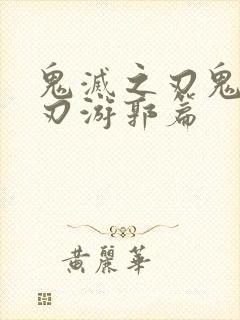 鬼滅之刃鬼
刃游郭篇
黄麗華